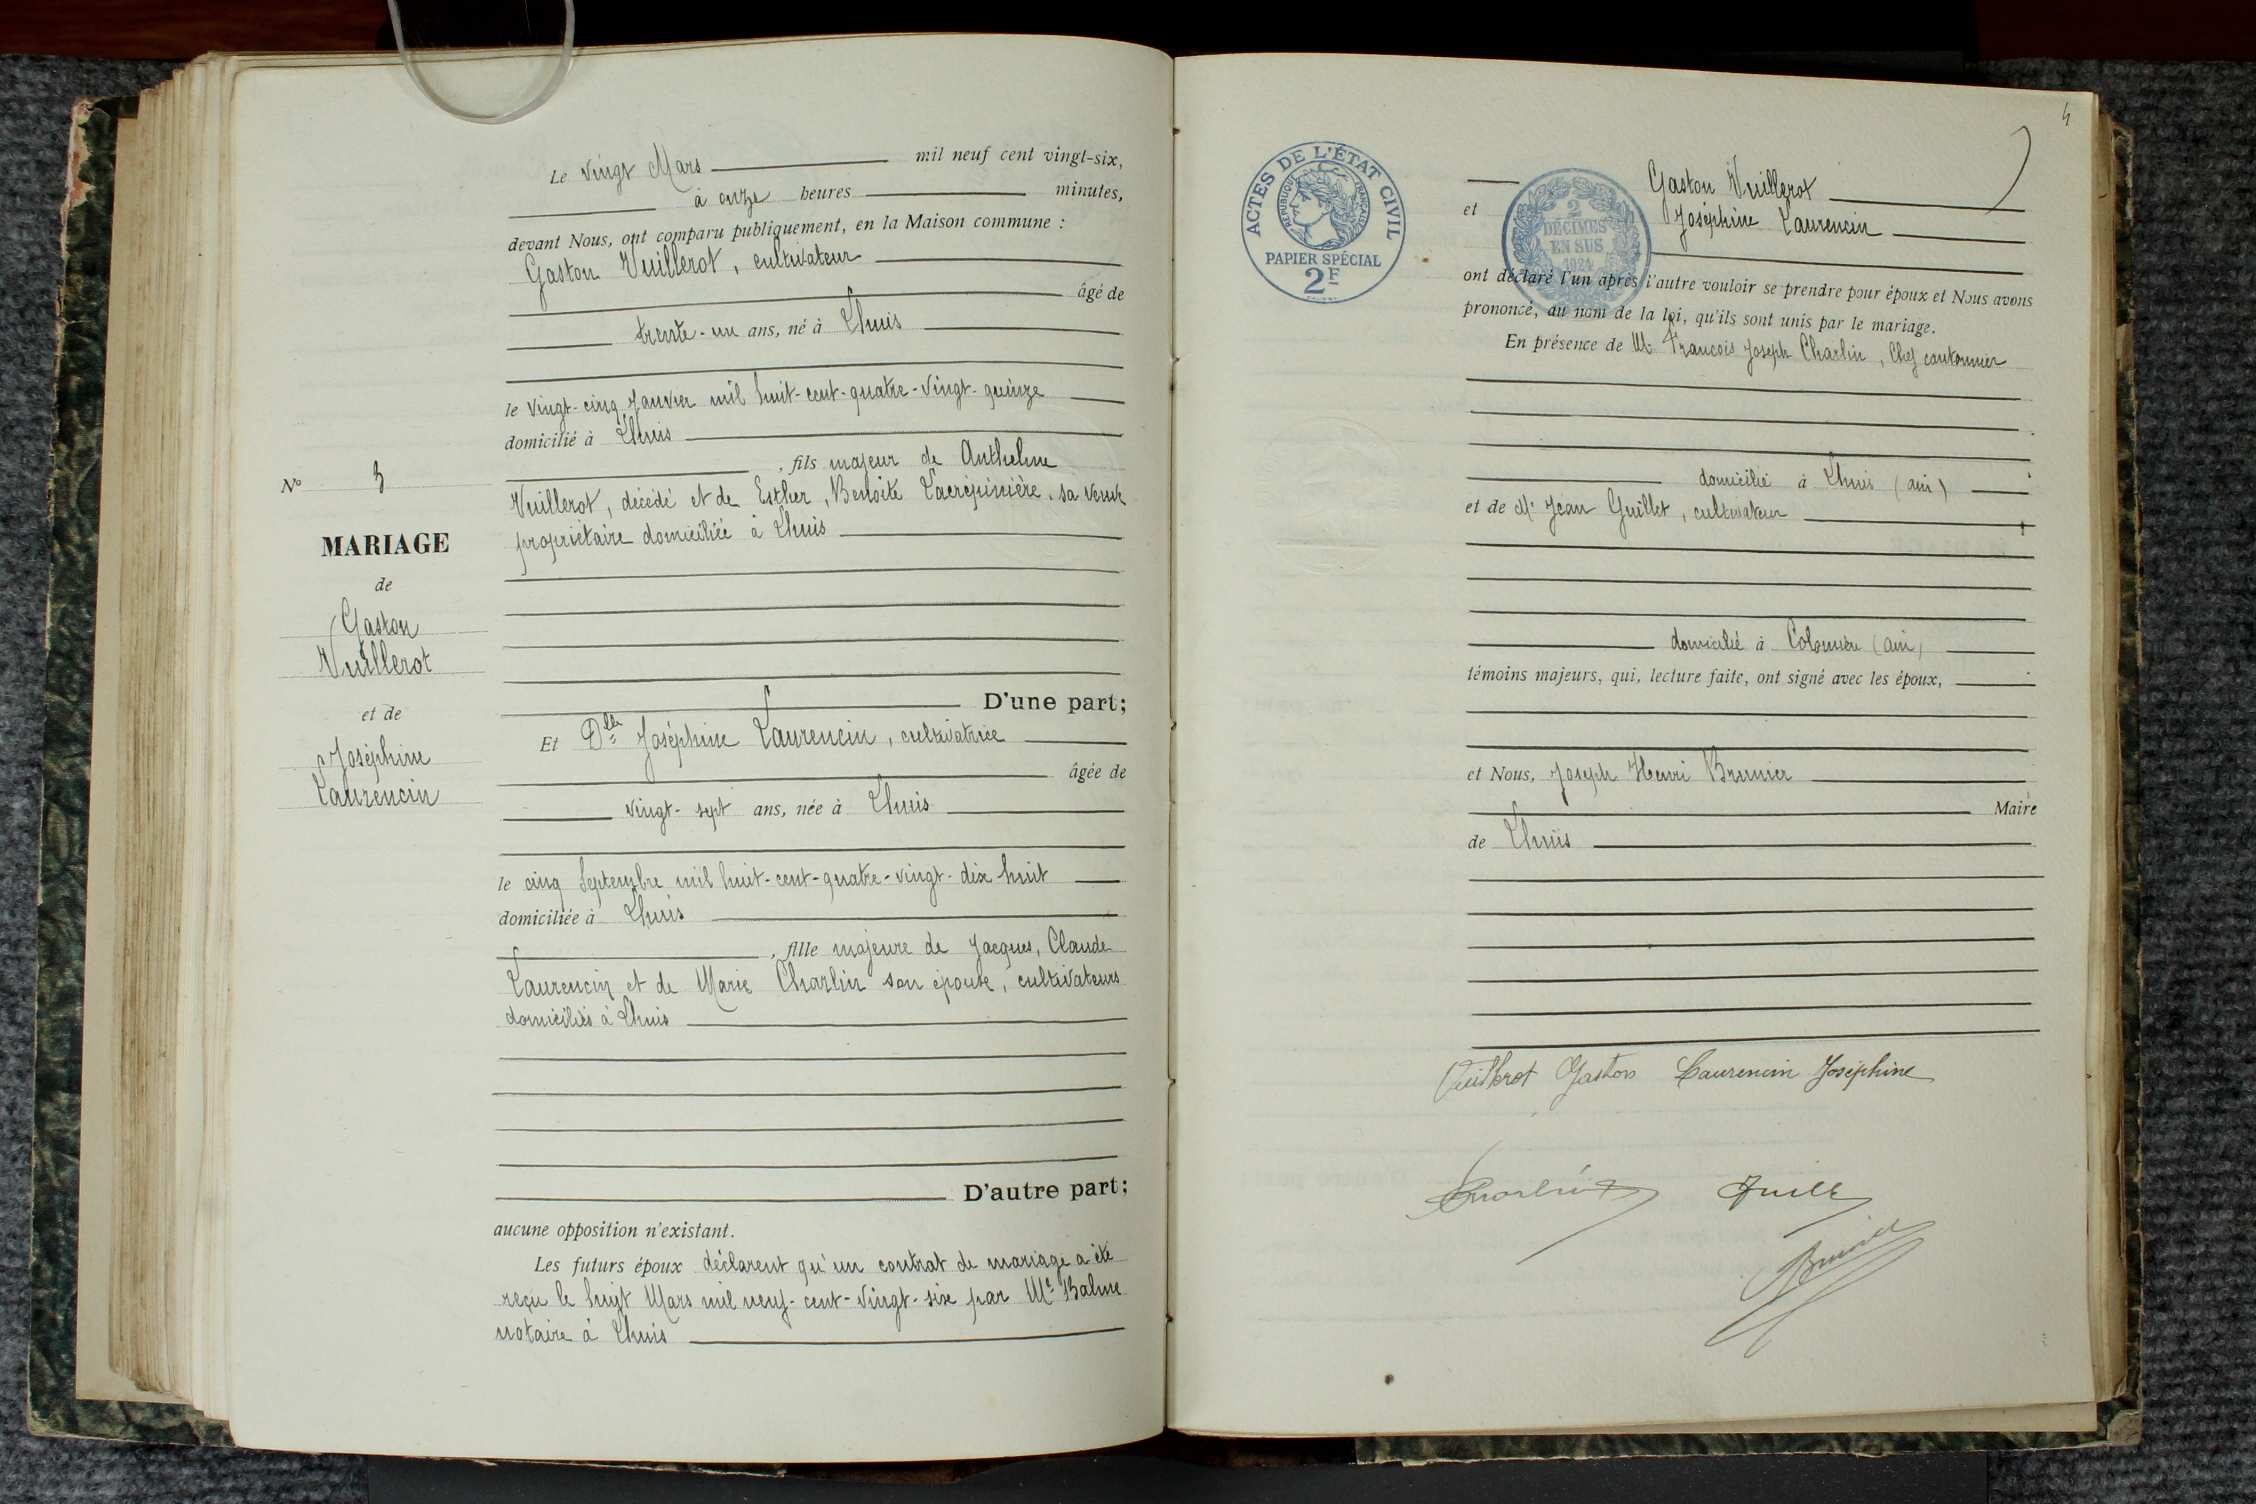 Le vingt Mars mil neuf cent vingt-six,
à onze heures minutes,
devant Nous, ont comparu publiquement, en la Maison commune :
Gaston Vuillerot, cultivateur
âgé de
trente-un ans, né à Lhuis
le vingt-cinq Janvier mil huit-cent-quatre-vingt-quinze
domicilié à Lhuis
, fils majeur de Anthelme
Vuillerot, décédé et de Esther, Benoite Lacrépinière, sa veuve
propriétaire domiciliée à Lhuis
D'une part;
Et Dlle Joséphine Laurencin, cultivatrice
âgée de
vingt-sept ans, née à Lhuis
le cinq Septembre mil huit-cent-quatre-vingt-dix huit
domiciliée à Lhuis
, fille majeure de Jacques, Claude
Laurencin et de Marie Charlin son épouse, cultivateurs
domiciliés à Lhuis
D'autre part;
aucune opposition n'existant.
Les futurs époux déclarent qu'un contrat de mariage a été
reçu le huit Mars mil neuf-cent-vingt-six par Me Balme
notaire à Lhuis
No 3
MARIAGE
de
Gaston
Vuillerot
et de
Joséphine
Laurencin
4
ACTES DE L'ÉTAT CIVIL
RÉPUBLIQUE FRANÇAISE
PAPIER SPÉCIAL
2F
2
DÉCIMES
EN SUS
1924
Gaston Vuillerot
et Joséphine Laurencin
ont déclaré l'un après l'autre vouloir se prendre pour époux et Nous avons
prononcé, au nom de la loi, qu'ils sont unis par le mariage.
En présence de Mr Francois Joseph Charlin, Chef cantonnier
domicilié à Lhuis (ain)
et de Mr Jean Guillet, cultivateur
domicilié à (ain)
témoins majeurs, qui, lecture faite, ont signé avec les époux,
et Nous, Joseph Henri Brunier
Maire
de Lhuis
Vuillerot Gaston Laurencin Joséphine
Charlin
Brunier